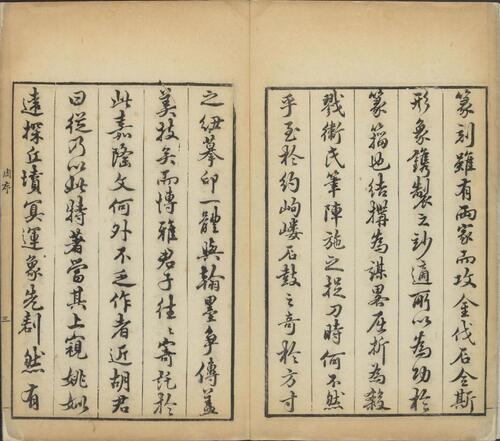 篆刻雖有兩家而攻金伐石会斯
形象鐫製之妙適所以為功於
篆籀也結搆為謀畧屈折為殺
戮衛氏筆陣施之捉刀時何不然
乎至於約岣嶁石鼓之奇於方寸
之紐摹印一體與翰墨争傳蓋
美技矣而博雅君子往〻寄託於
此嘉隆文何外不乏作者近胡君
曰從乃以此特著當其上窺姚姒
遠探丘墳冥運象先劃然有
周序
三